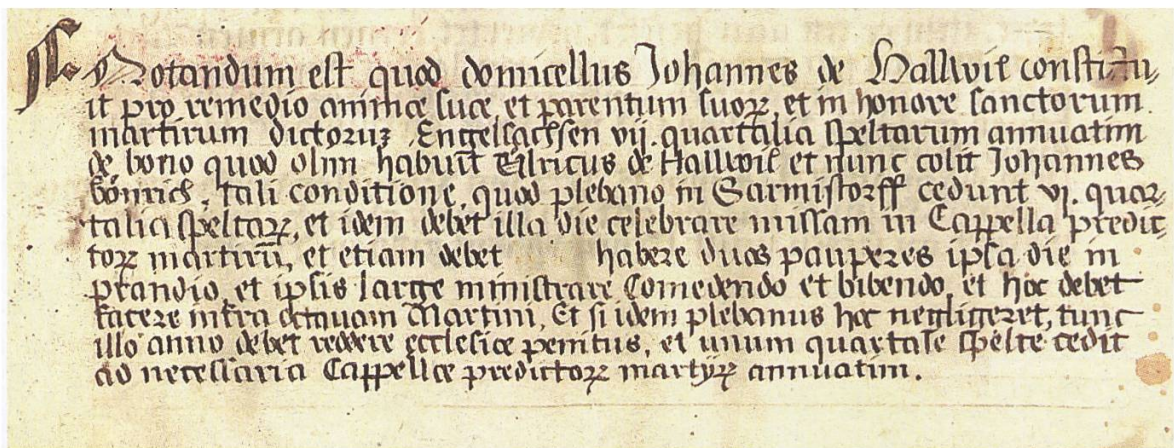 Notandum est quod domicellus Johannes de Hallwil constitu-
it pro remedio animæ suæ et parentum suorꝝ, et in honore sanctorum
martirum dictoruȝ Engelsachsen vij. quartalia speltarum annuatim
de bono quod olim habuit Ulricus de Hallwil et nunc colit Johannes
Bönrich, tali conditione, quod plebano in Sarmistorff cedunt vj. quar-
talia speltarꝝ, et idem debet illa die celebrare missam in Cappella predic-
torꝝ martirū, et etiam debet habere duos pauperes ipsa die in
prandio, et ipsis large ministrare Comedendo et bibendo, et hoc debet
facere infra octavam Martini, Et si idem plebanus hoc negligeret, tunc
illo anno debet reddere ecclesiæ penitus, et unum quartale spelte cedit
ad necessaria Cappellæ predictorꝝ martyrꝝ annuatim.